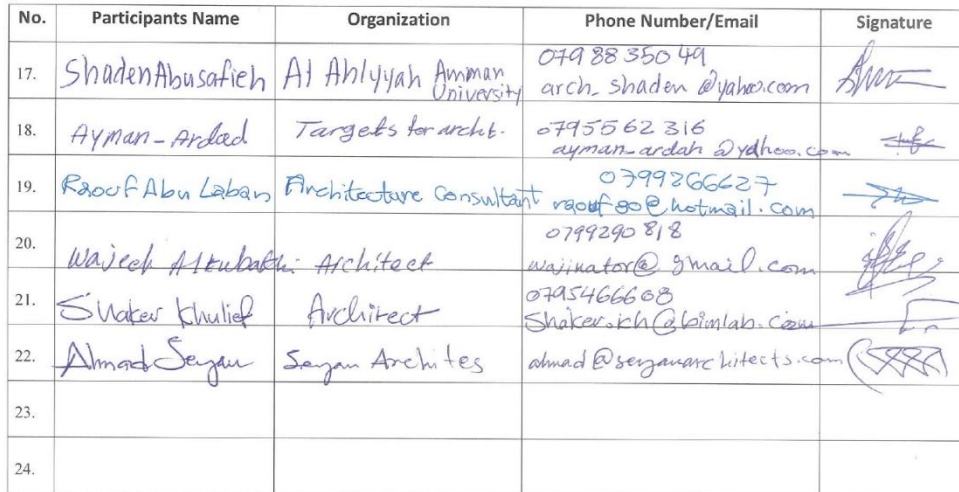 No. Participants Name Organization Phone Number/Email Signature
17. Shaden Abusafieh Al Ahlyyah Amman University 079 88 350 49
arch_shaden @yahoo.com
18. Ayman-Ardad Targets for archt. 0795562316
ayman_ardah @yahoo.com
19. Raouf Abu Laban Architecture Consultant 0799266627
raouf80@hotmail.com
20. Wajeeh Architect 0799290818
wajinator@gmail.com
21. Shaker Khulief Architect 0795466608
Shaker.kh@bimlab.com
22. Ahmad Seyam Seyam Archites ahmad@seyamarchitects.com
23.
24.